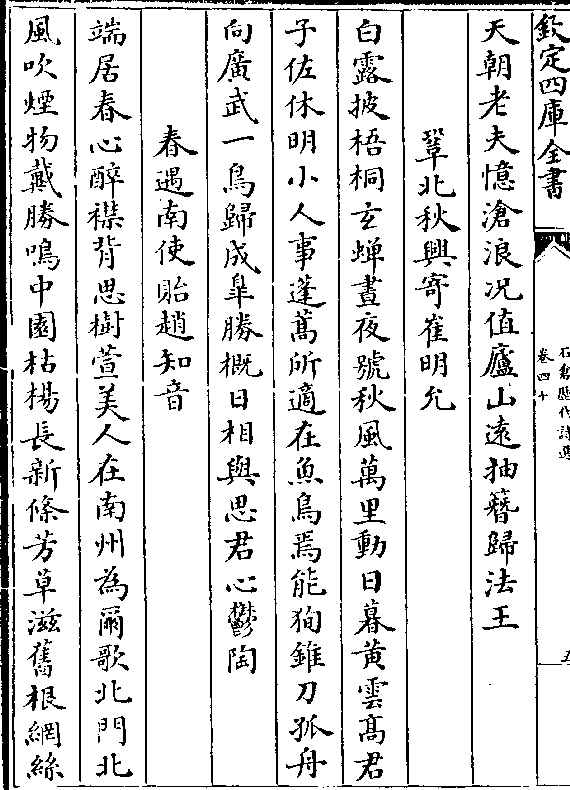 欽定四庫全書
石倉歷代詩選
卷四十
五
天朝老夫憶滄浪况值廬山遠抽簪歸法王
鞏北秋興寄崔明允
白露披梧桐玄蟬晝夜號秋風萬里動日暮黄雲髙君
子佐休明小人事蓬蒿所適在魚鳥焉能狥錐刀孤舟
向廣武一鳥歸成臯勝概日相與思君心鬱陶
春遇南使貽趙知音
端居春心醉襟背思樹萱美人在南州為爾歌北門北
風吹煙物戴勝鳴中園枯楊長新條芳草滋舊根網絲